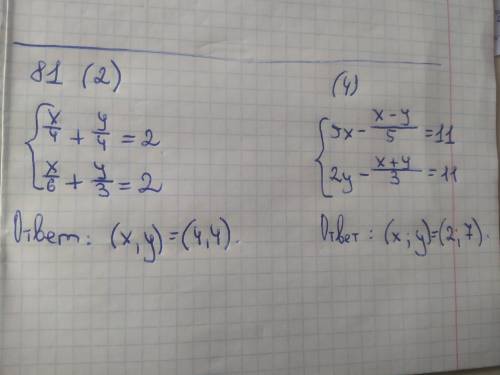 81 (2)
x/4 + y/4 = 2
x/6 + y/3 = 2
Ответ: (x, y) = (4,4).
(4)
5x - x-y/5 = 11
2y - x+y/3 = 11
Ответ: (x; y) = (2; 7).